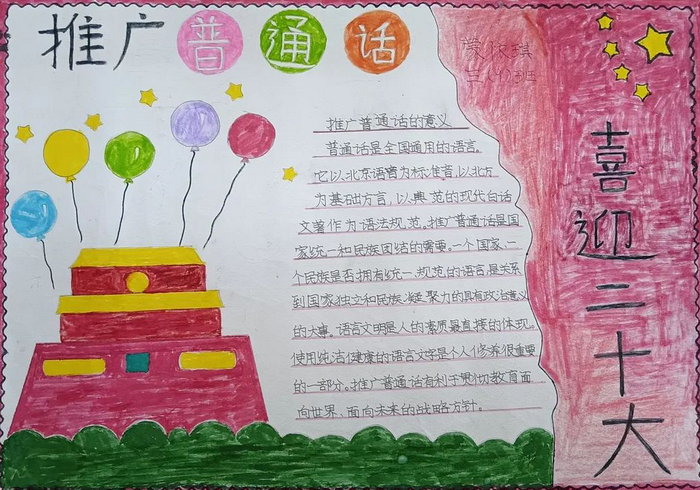 推广普通话
三(4)班
推广普通话的意义
普通话是全国通用的语言。
它以北京语音为标准音以北方
为基础方言，以典范的现代白话
文著作为语法规范。推广普通话是国
家统一和民族团结的需要。一个国家、一
个民族是否拥有统一、规范的语言，是关系
到国家独立和民族凝聚力的具有政治意义
的大事。语言文明是人的素质最直接的体现。
使用纯洁健康的语言文字是个人修养很重要
的一部分。推广普通话有利于贯彻教育面
向世界、面向未来的战略方针。
喜迎二十大